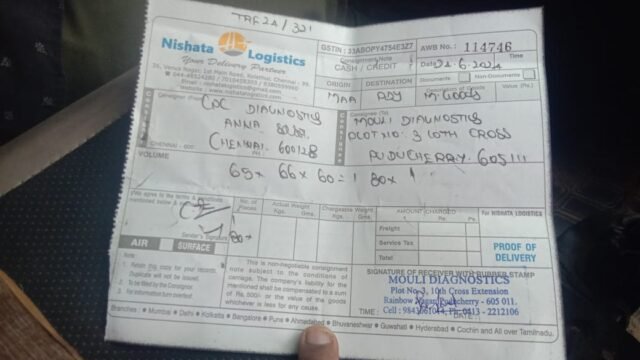 TRF 24/321
Nishata Logistics
Your Delivery Partner
GSTIN : 33ASOPY4754E3Z7
AWB No. : 114746
Consignment Note
CASH / CREDIT
Date 22.6.2024
Time
Documents
Non-Documents
ORIGIN
DESTINATION
Value (Rs.)
MAA
PDY
M.GOODS
Consignor
CDC DIAGNOSTICS
ANNA
CHENNAI. 600128
CHENNAI - 600
PH :
Consignee (To)
MOULI DIAGNOSTICS
PLOT NO: 3 10TH CROSS
PUDUCHERRY. 605111
VOLUME
65 x 66 x 60 = 1 80 x 1
(We agree to the terms & conditions
mentioned below &
Sender's Signature
No. of Pieces
Actual Weight
Kgs. Gms.
Chargeable Weight
Kgs. Gms.
AMOUNT CHARGED
Rs. Ps.
For NISHATA LOGISTICS
Freight
Service Tax
Total
AIR
SURFACE
PROOF OF DELIVERY
Note :
1. Retain this copy for your records.
Duplicate will not be issued.
2. To be filled by the Consignor.
3. For information turn overleaf.
This is non-negotiable consignment
note subject to the conditions of
carriage. The company's liability for the
mentioned shall be compensated to a sum
of Rs. 500/- or the value of the goods
whichever is less for any cause.
SIGNATURE OF RECEIVER WITH RUBBER STAMP
MOULI DIAGNOSTICS
Plot No-3, 10th Cross Extension
Rainbow Nagar, Puducherry - 605 011.
Cell : 9843061044, Ph-0413 - 2212106
TIME :
DATE :
Branches : • Mumbai • Delhi • Kolkata • Bangalore • Pune • Ahmedabad • Bhuvaneshwar • Guwahati • Hyderabad • Cochin and All over Tamilnadu.